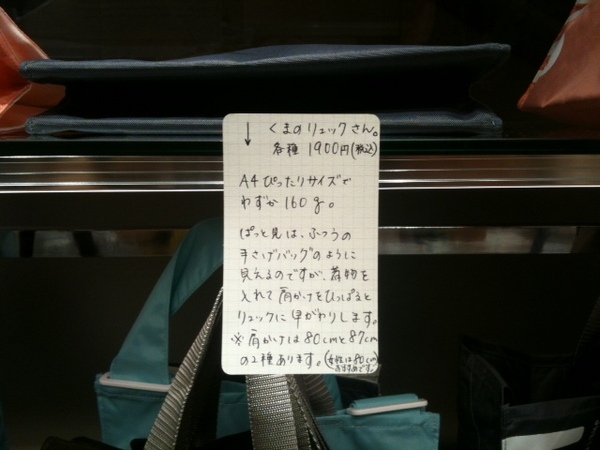 ↓ くまのリュックさん。
各種 1900円(税込)
A4ぴったりサイズで
わずか 160g。
ぱっと見は、ふつうの
手さげバッグのように
見えるのですが、荷物を
入れて肩かけをひっぱると
リュックに早がわりします。
※肩かけは80cmと87cm
の2種あります。(女性は80cm
おすすめです。)